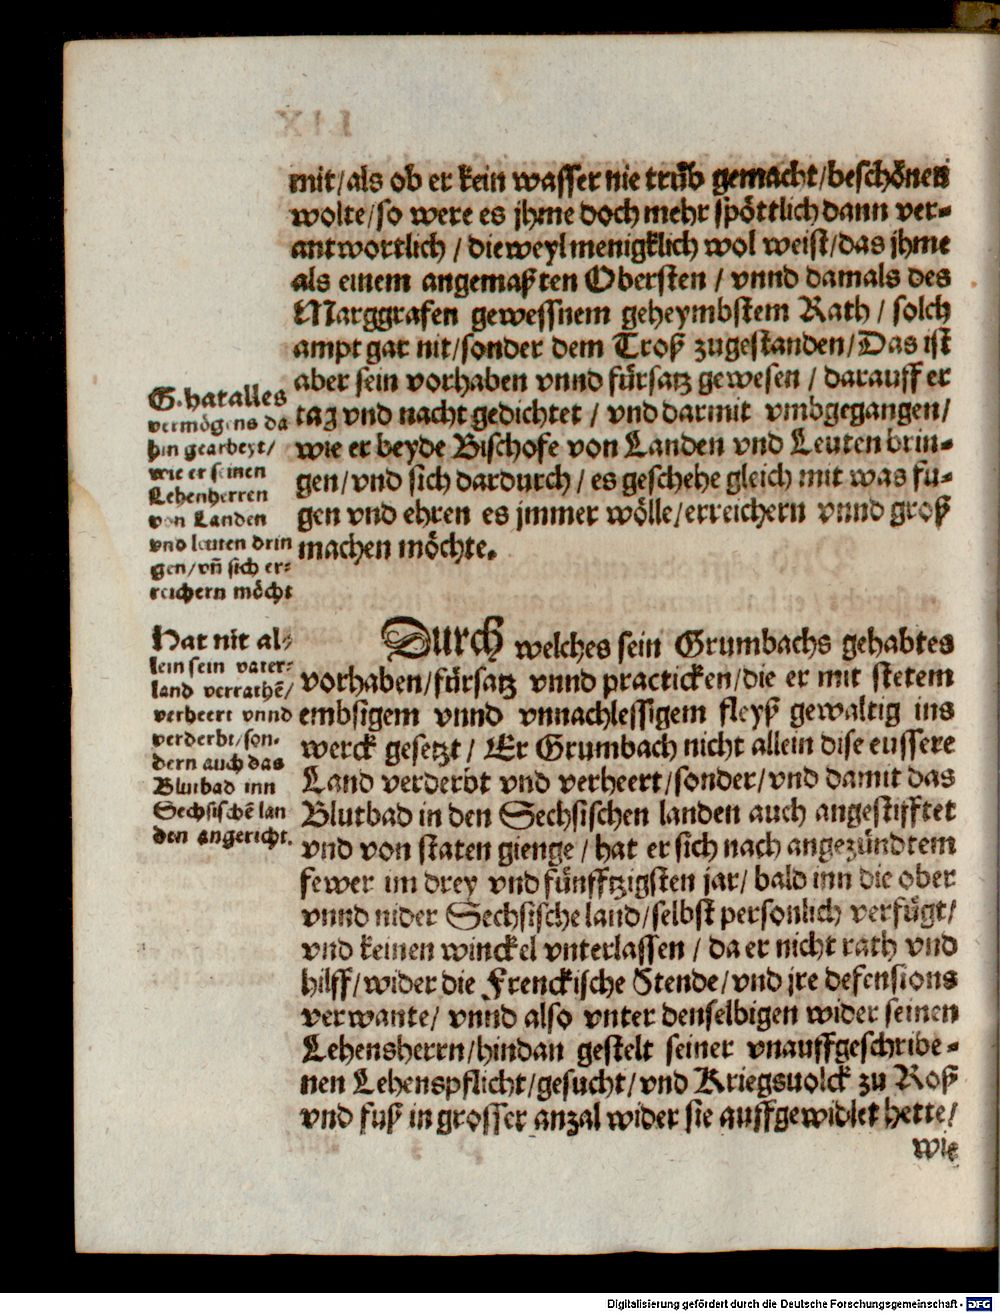 mit/als ob er kein wasser nie trüb gemacht/beschönen
wolte/so were es jhme doch mehr spöttlich dann ver-
antwortlich / dieweyl menigklich wol weist/das jhme
als einem angemaßten Obersten / vnnd damals des
Marggrafen gewessnem geheymbstem Rath / solch
ampt gar nit/sonder dem Troß zugestanden/Das ist
aber sein vorhaben vnnd fürsatz gewesen / darauff er
tag vnd nacht gedichtet / vnd darmit vmbgegangen/
wie er beyde Bischofe von Landen vnd Leuten brin-
gen/vnd sich dardurch / es geschehe gleich mit was fu-
gen vnd ehren es jmmer wölle/erreichern vnnd groß
machen möchte.
G. hat alles
vermögens da
hin gearbeyt/
wie er seinen
Lehenherren
von Landen
vnd leuten drin
gen/vñ sich er-
reichern möcht
Durch welches sein Grumbachs gehabtes
vorhaben/fürsatz vnnd practicken/die er mit stetem
embsigem vnnd vnnachlessigem fleyß gewaltig ins
werck gesetzt / Er Grumbach nicht allein dise eussere
Land verderbt vnd verheert/sonder/vnd damit das
Blutbad in den Sechsischen landen auch angestifftet
vnd von staten gienge / hat er sich nach angezündtem
fewer im drey vnd fünfftzigsten jar/ bald inn die ober
vnnd nider Sechsische land/selbst personlich verfügt/
vnd keinen winckel vnterlassen / da er nicht rath vnd
hilff/wider die Frenckische Stende/vnd jre defensions
verwante/ vnnd also vnter denselbigen wider seinen
Lehensherrn/hindan gestelt seiner vnauffgeschribe-
nen Lehenspflicht/gesucht/vnd Kriegsuolck zu Roß
vnd fuß in grosser anzal wider sie auffgewidlet hette/
wie
Hat nit al-
lein sein vater-
land verrathẽ/
verheert vnnd
verderbt/son-
dern auch das
Blutbad inn
Sechsischẽ lan
den angericht.
Digitalisierung gefördert durch die Deutsche Forschungsgemeinschaft - DFG